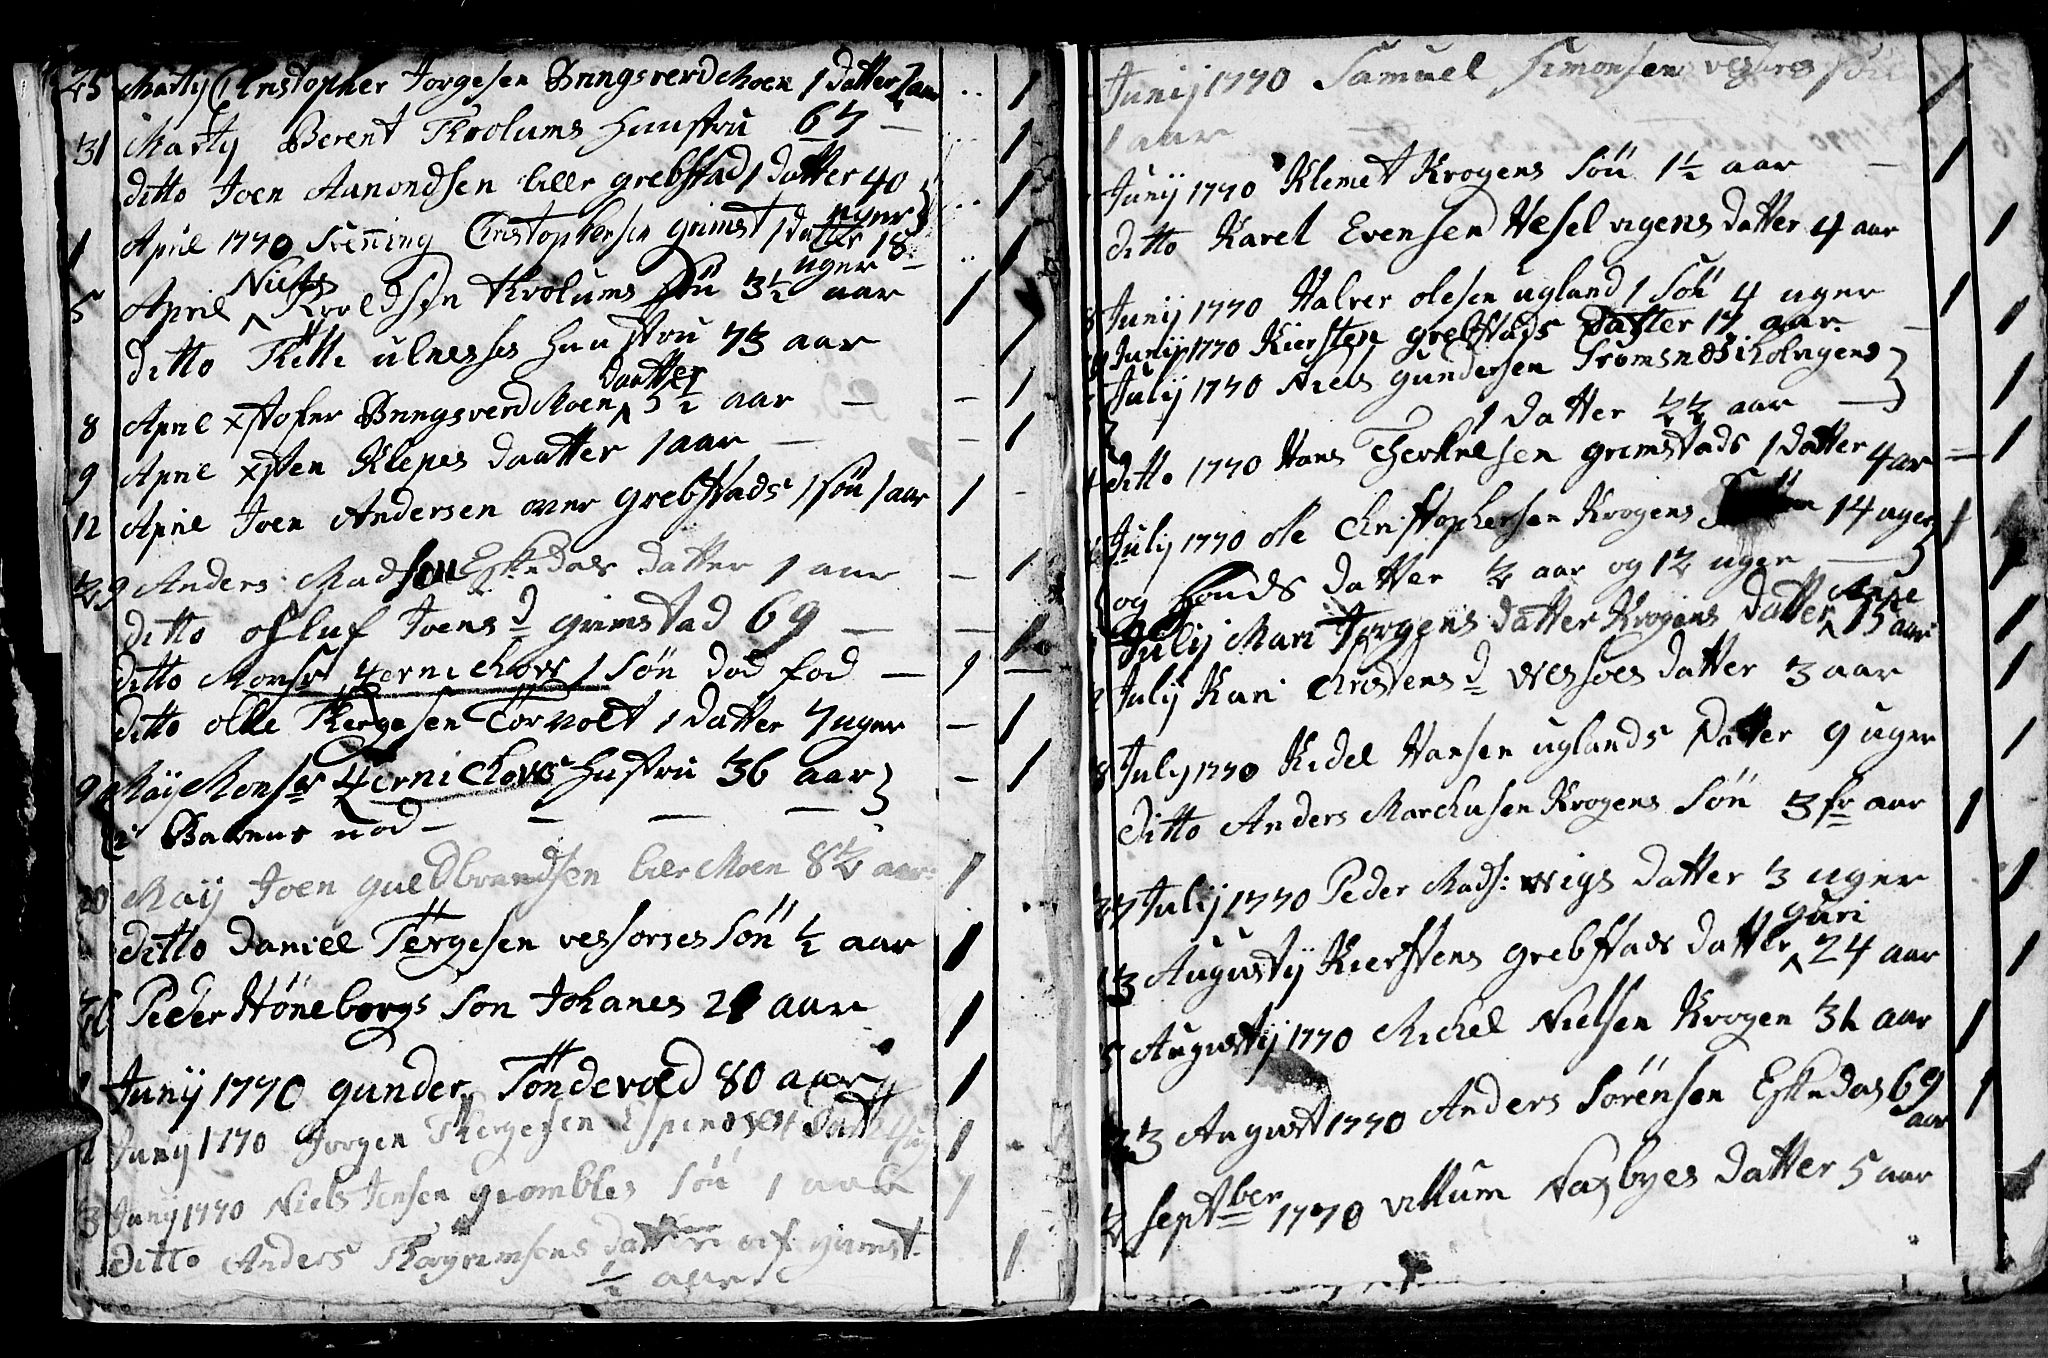 25 Marty Christopher Jorgesen Bringsverd Moen 1 datter 2 aar .. 1
31 Marty Berent Krolums Haustru 67 — ... 1
ditto Joen Aamondsen lille grebstad 1 datter 40 uger ... 1
1 April 1770 Svenning Christophersen grimst 1 datter 18 uger — .. 1
5 April Niels Roeldsen Krolums Søn 3½ aar 1
ditto Kitti ulnesses Haustru 73 aar 1
8 April xstofer Bringsverd Moen daatter 5½ aar — — 1
9 April xsten Klepes daatter 1 aar — — 1
12 April Joen Andersen over grebstads 1 søn 1 aar 1 -
29 Anders Madsen Eskedals datter 1 aar — 1
ditto ofluf Joensd grimstad 69 — — 1
ditto Monsr 4ernichow 1 søn død fød — 1 —
ditto olle Tergesen Torvolt 1 datter 7 uger — 1
9 Maij Monsr 4ernichows Hustru 36 aar — 1
2 Barnenød — — — —
20 Maij Joen guldbrandsen lille Moen 82 aar 1
ditto Daniel Tergesen vessøres søn ½ aar 1
26 Peder Høneborgs søn Johanes 21 aar 1
1 Junij 1770 gunder Tøndevold 80 aar 1
2 Junij 1770 Jorgen Tergesen Espenes 1
3 Junij 1770 Niels Jensen grombles søn 1 aar 1
ditto Anders Torgrimsens datter af grimst
½ aar 1
Junij 1770 Samuel Simonsen vessøres søn 1
1 aar
Junij 1770 Klemet Krogens søn 1½ aar — 1
ditto Karel Evensen Hesel vigens datter 4 aar 1
8 Junij 1770 Halver olesen ugland 1 søn 4 uger 1
Junij 1770 Kiersten grebstads datter 17 aar — 1
Julij 1770 Niels gundersen Tromsnæs i holvigens
1 datter 22 aar — 1
ditto 1770 Hans Terkelsen grimstads 1 datter 4 ar — 1
Julij 1770 ole Christophersen Krogens 14 uger 1
og datter ½ aar og 12 uger — 1
Julij Mari Jorgens datter Krogens datter Anne 15 aar 1
Julij Kari Christensd vessøes datter 3 aar 1
8 July 1770 Kidel Hansen uglands 1 datter 9 uger 1
Ditto Anders Marchusen Krogens søn 3 fr aar 1
27 Julij 1770 Peder Mads: wigs datter 3 uger 1
13 Augustij Kierstens grebstads datter guri 24 aar 1
5 Augustij 1770 Michel Nielsen Krogen 3½ aar 1
23 August 1770 Anders Sørensen Eskedal 69 aar 1
2 septber 1770 villum Naxbyes datter 5 aar 1